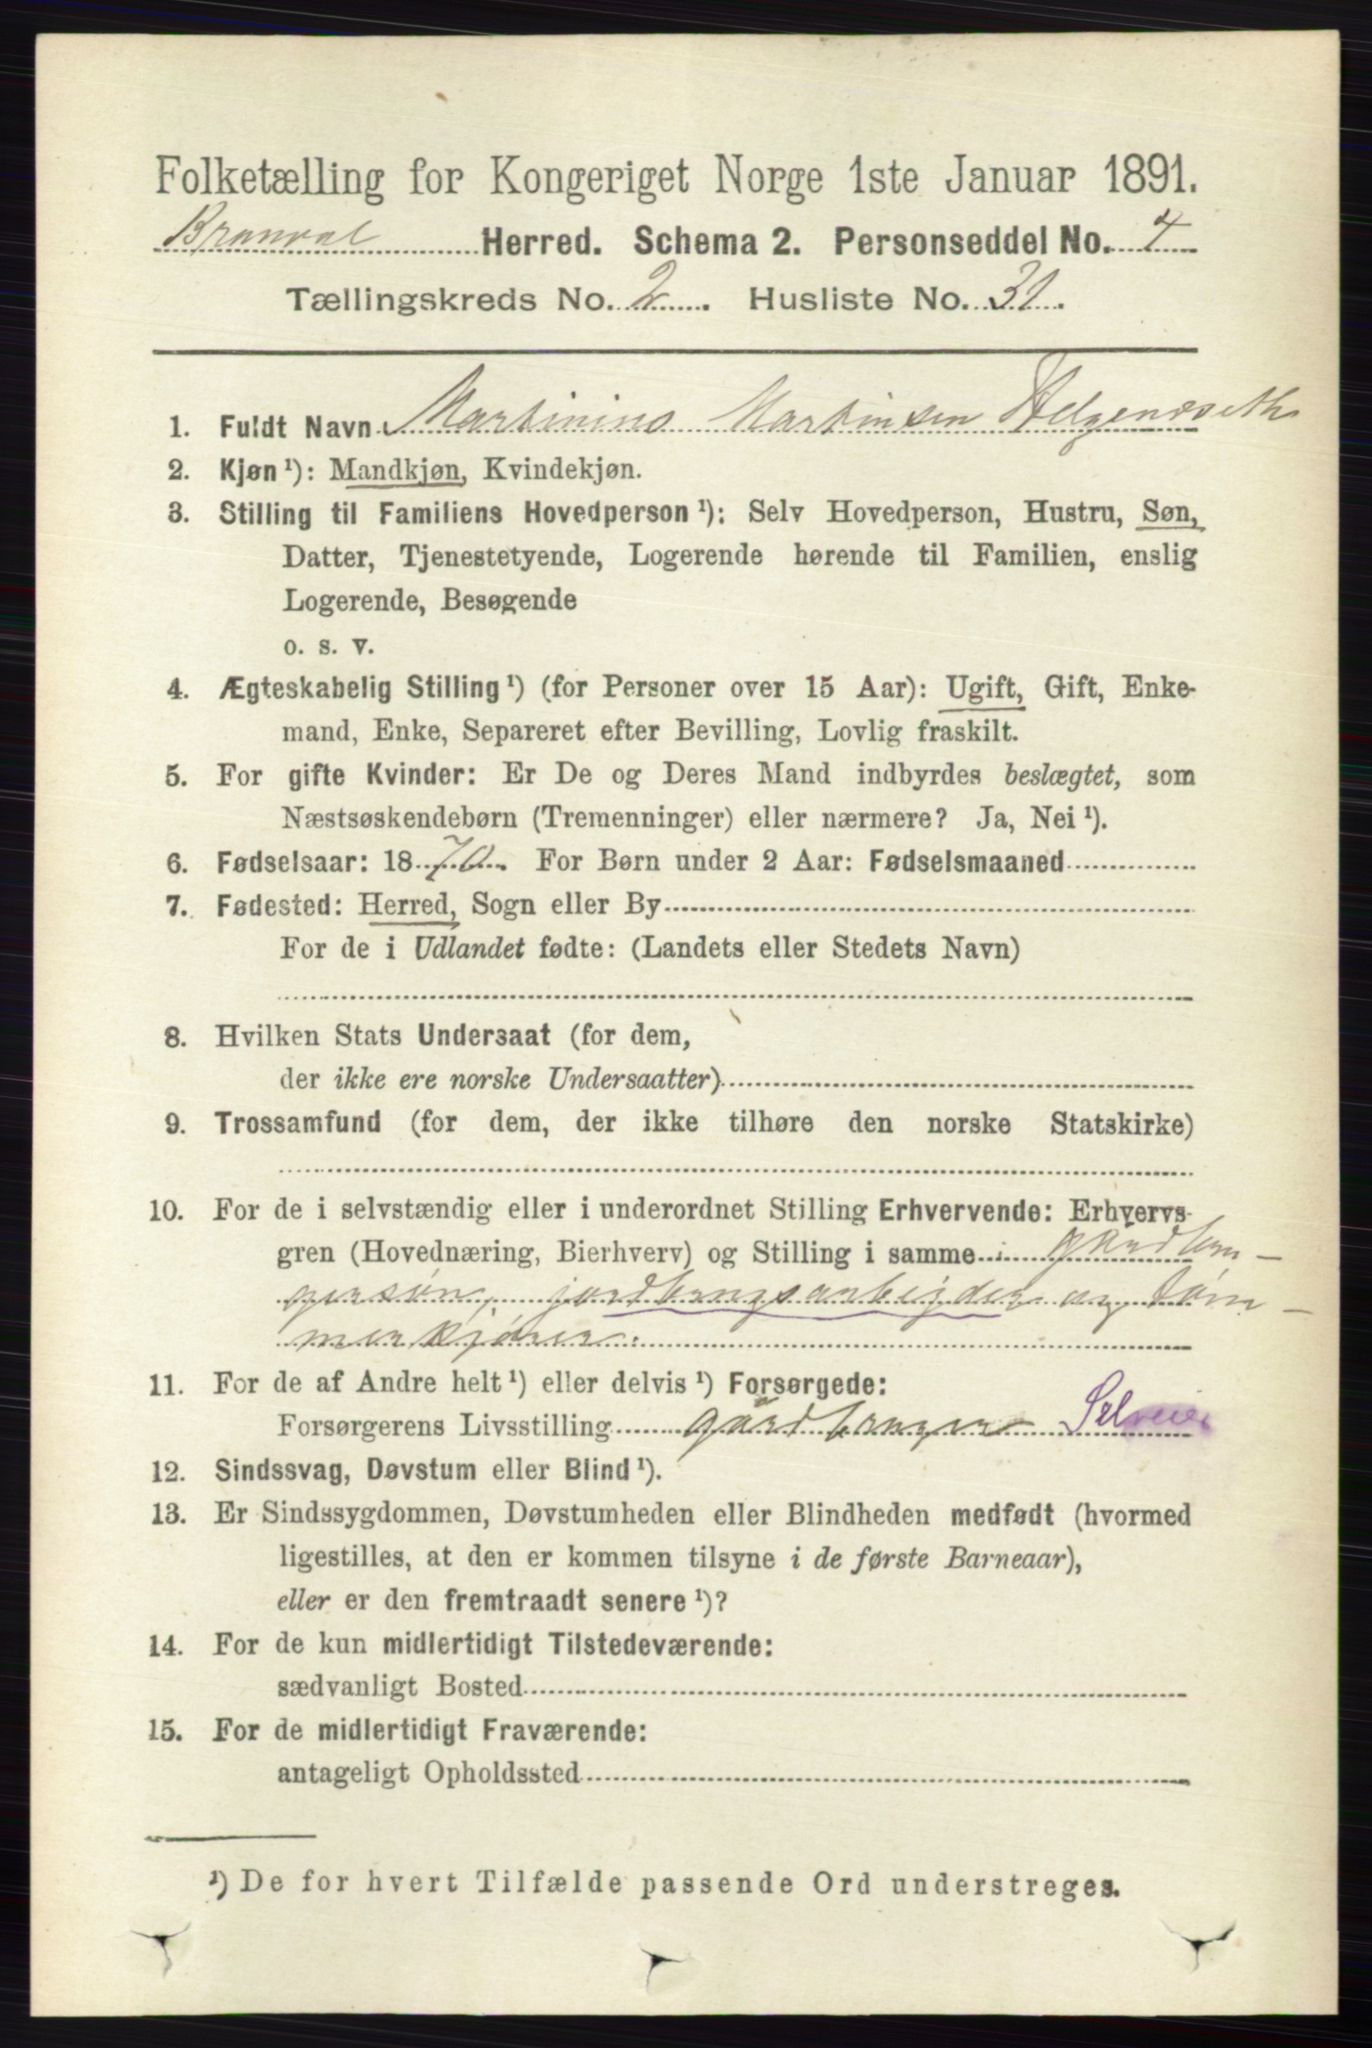 Folketælling for Kongeriget Norge 1ste Januar 1891.
Branval Herred. Schema 2. Personseddel No. 4
Tællingskreds No. 2. Husliste No. 31.
1. Fuldt Navn Martinius Martinsen Helgenæseth
2. Kjøn ¹): Mandkjøn, Kvindekjøn.
3. Stilling til Familiens Hovedperson ¹): Selv Hovedperson, Hustru, Søn,
Datter, Tjenestetyende, Logerende hørende til Familien, enslig
Logerende, Besøgende
o. s. v.
4. Ægteskabelig Stilling ¹) (for Personer over 15 Aar): Ugift, Gift, Enke-
mand, Enke, Separeret efter Bevilling, Lovlig fraskilt.
5. For gifte Kvinder: Er De og Deres Mand indbyrdes beslægtet, som
Næstsøskendebørn (Tremenninger) eller nærmere? Ja, Nei ¹).
6. Fødselsaar: 1870. For Børn under 2 Aar: Fødselsmaaned
7. Fødested: Herred, Sogn eller By
For de i Udlandet fødte: (Landets eller Stedets Navn)
8. Hvilken Stats Undersaat (for dem,
der ikke ere norske Undersaatter)
9. Trossamfund (for dem, der ikke tilhøre den norske Statskirke)
10. For de i selvstændig eller i underordnet Stilling Erhvervende: Erhvervs-
gren (Hovednæring, Bierhverv) og Stilling i samme gårdbru-
gersøn, jordbrugsarbeider og töm-
merkjörer.
11. For de af Andre helt ¹) eller delvis ¹) Forsørgede:
Forsørgerens Livsstilling gårdbruger Selveier
12. Sindssvag, Døvstum eller Blind ¹).
13. Er Sindssygdommen, Døvstumheden eller Blindheden medfødt (hvormed
ligestilles, at den er kommen tilsyne i de første Barneaar),
eller er den fremtraadt senere ¹)?
14. For de kun midlertidigt Tilstedeværende:
sædvanligt Bosted
15. For de midlertidigt Fraværende:
antageligt Opholdssted
¹) De for hvert Tilfælde passende Ord understreges.